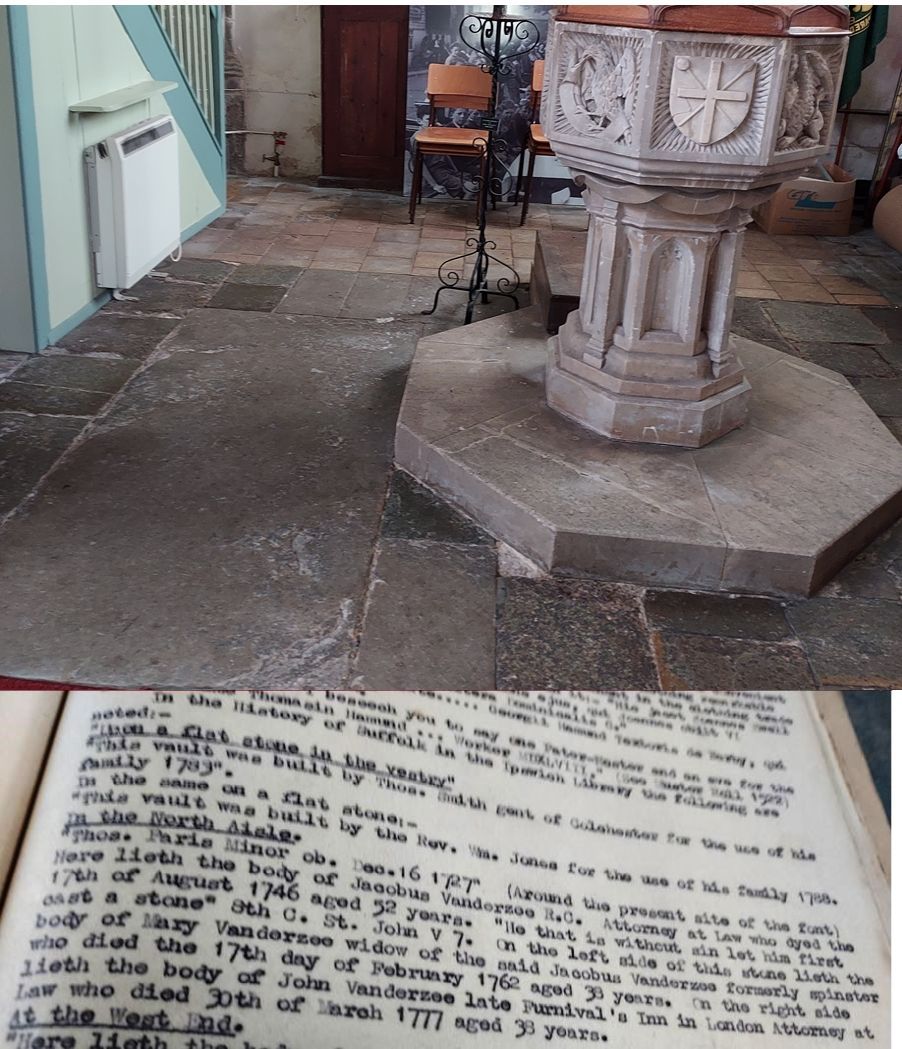 Thomasin Hamund ... Worker MDXLVIII." (See Muster Roll 1522)
beseech you to say one Pater-Noster and an eve for the
In the History of Suffolk in the Ipswich Library the following are
noted:-
"Upon a flat stone in the vestry"
"This vault was built by Thos. Smith gent of Colchester for the use of his
family 1783".
In the same on a flat stone:-
"This vault was built by the Rev. Wm. Jones for the use of his family 1788.
In the North Aisle.
"Thos. Paris Minor ob. Dec.16 1727" (Around the present site of the font)
Here lieth the body of Jacobus Vanderzee R.C. Attorney at Law who dyed the
17th of August 1746 aged 52 years. "He that is without sin let him first
cast a stone" 8th C. St. John V 7. On the left side of this stone lieth the
body of Mary Vanderzee widow of the said Jacobus Vanderzee formerly spinster
who died the 17th day of February 1762 aged 38 years. On the right side
lieth the body of John Vanderzee late Furnival's Inn in London Attorney at
Law who died 30th of March 1777 aged 38 years.
At the West End.
"Here lieth the